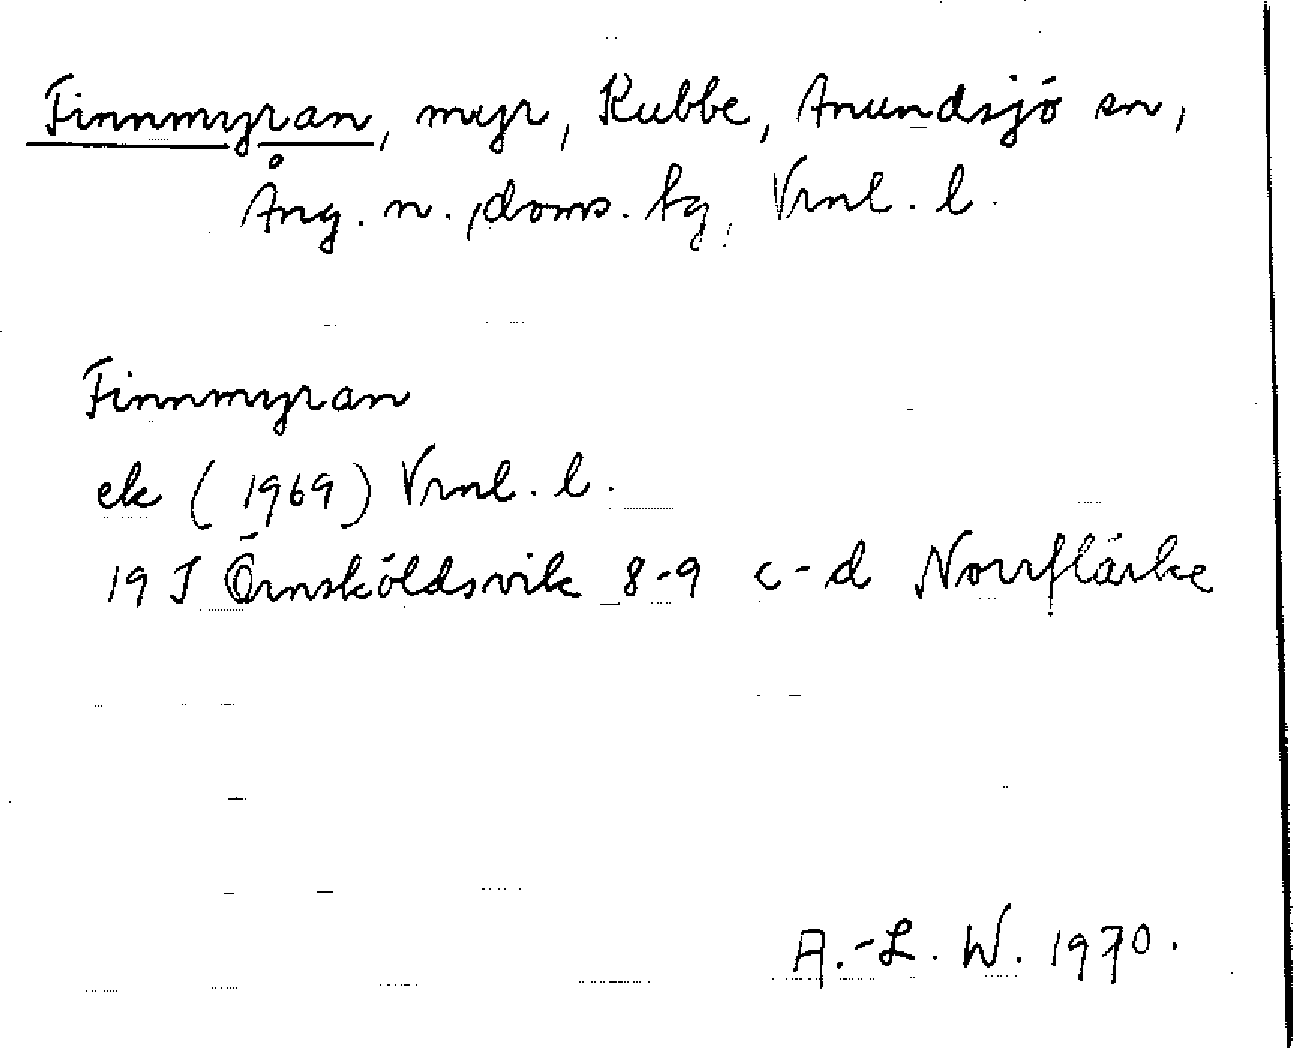 Finnmyran, myr, Kubbe, Anundsjö sn,
Ång. n., doms. tg, Vrnl. l.
Finnmyran
ek (1969) Vrnl. l.
19 J Örnsköldsvik 8-9 c-d Norrflärke
A.-L. W. 1970.